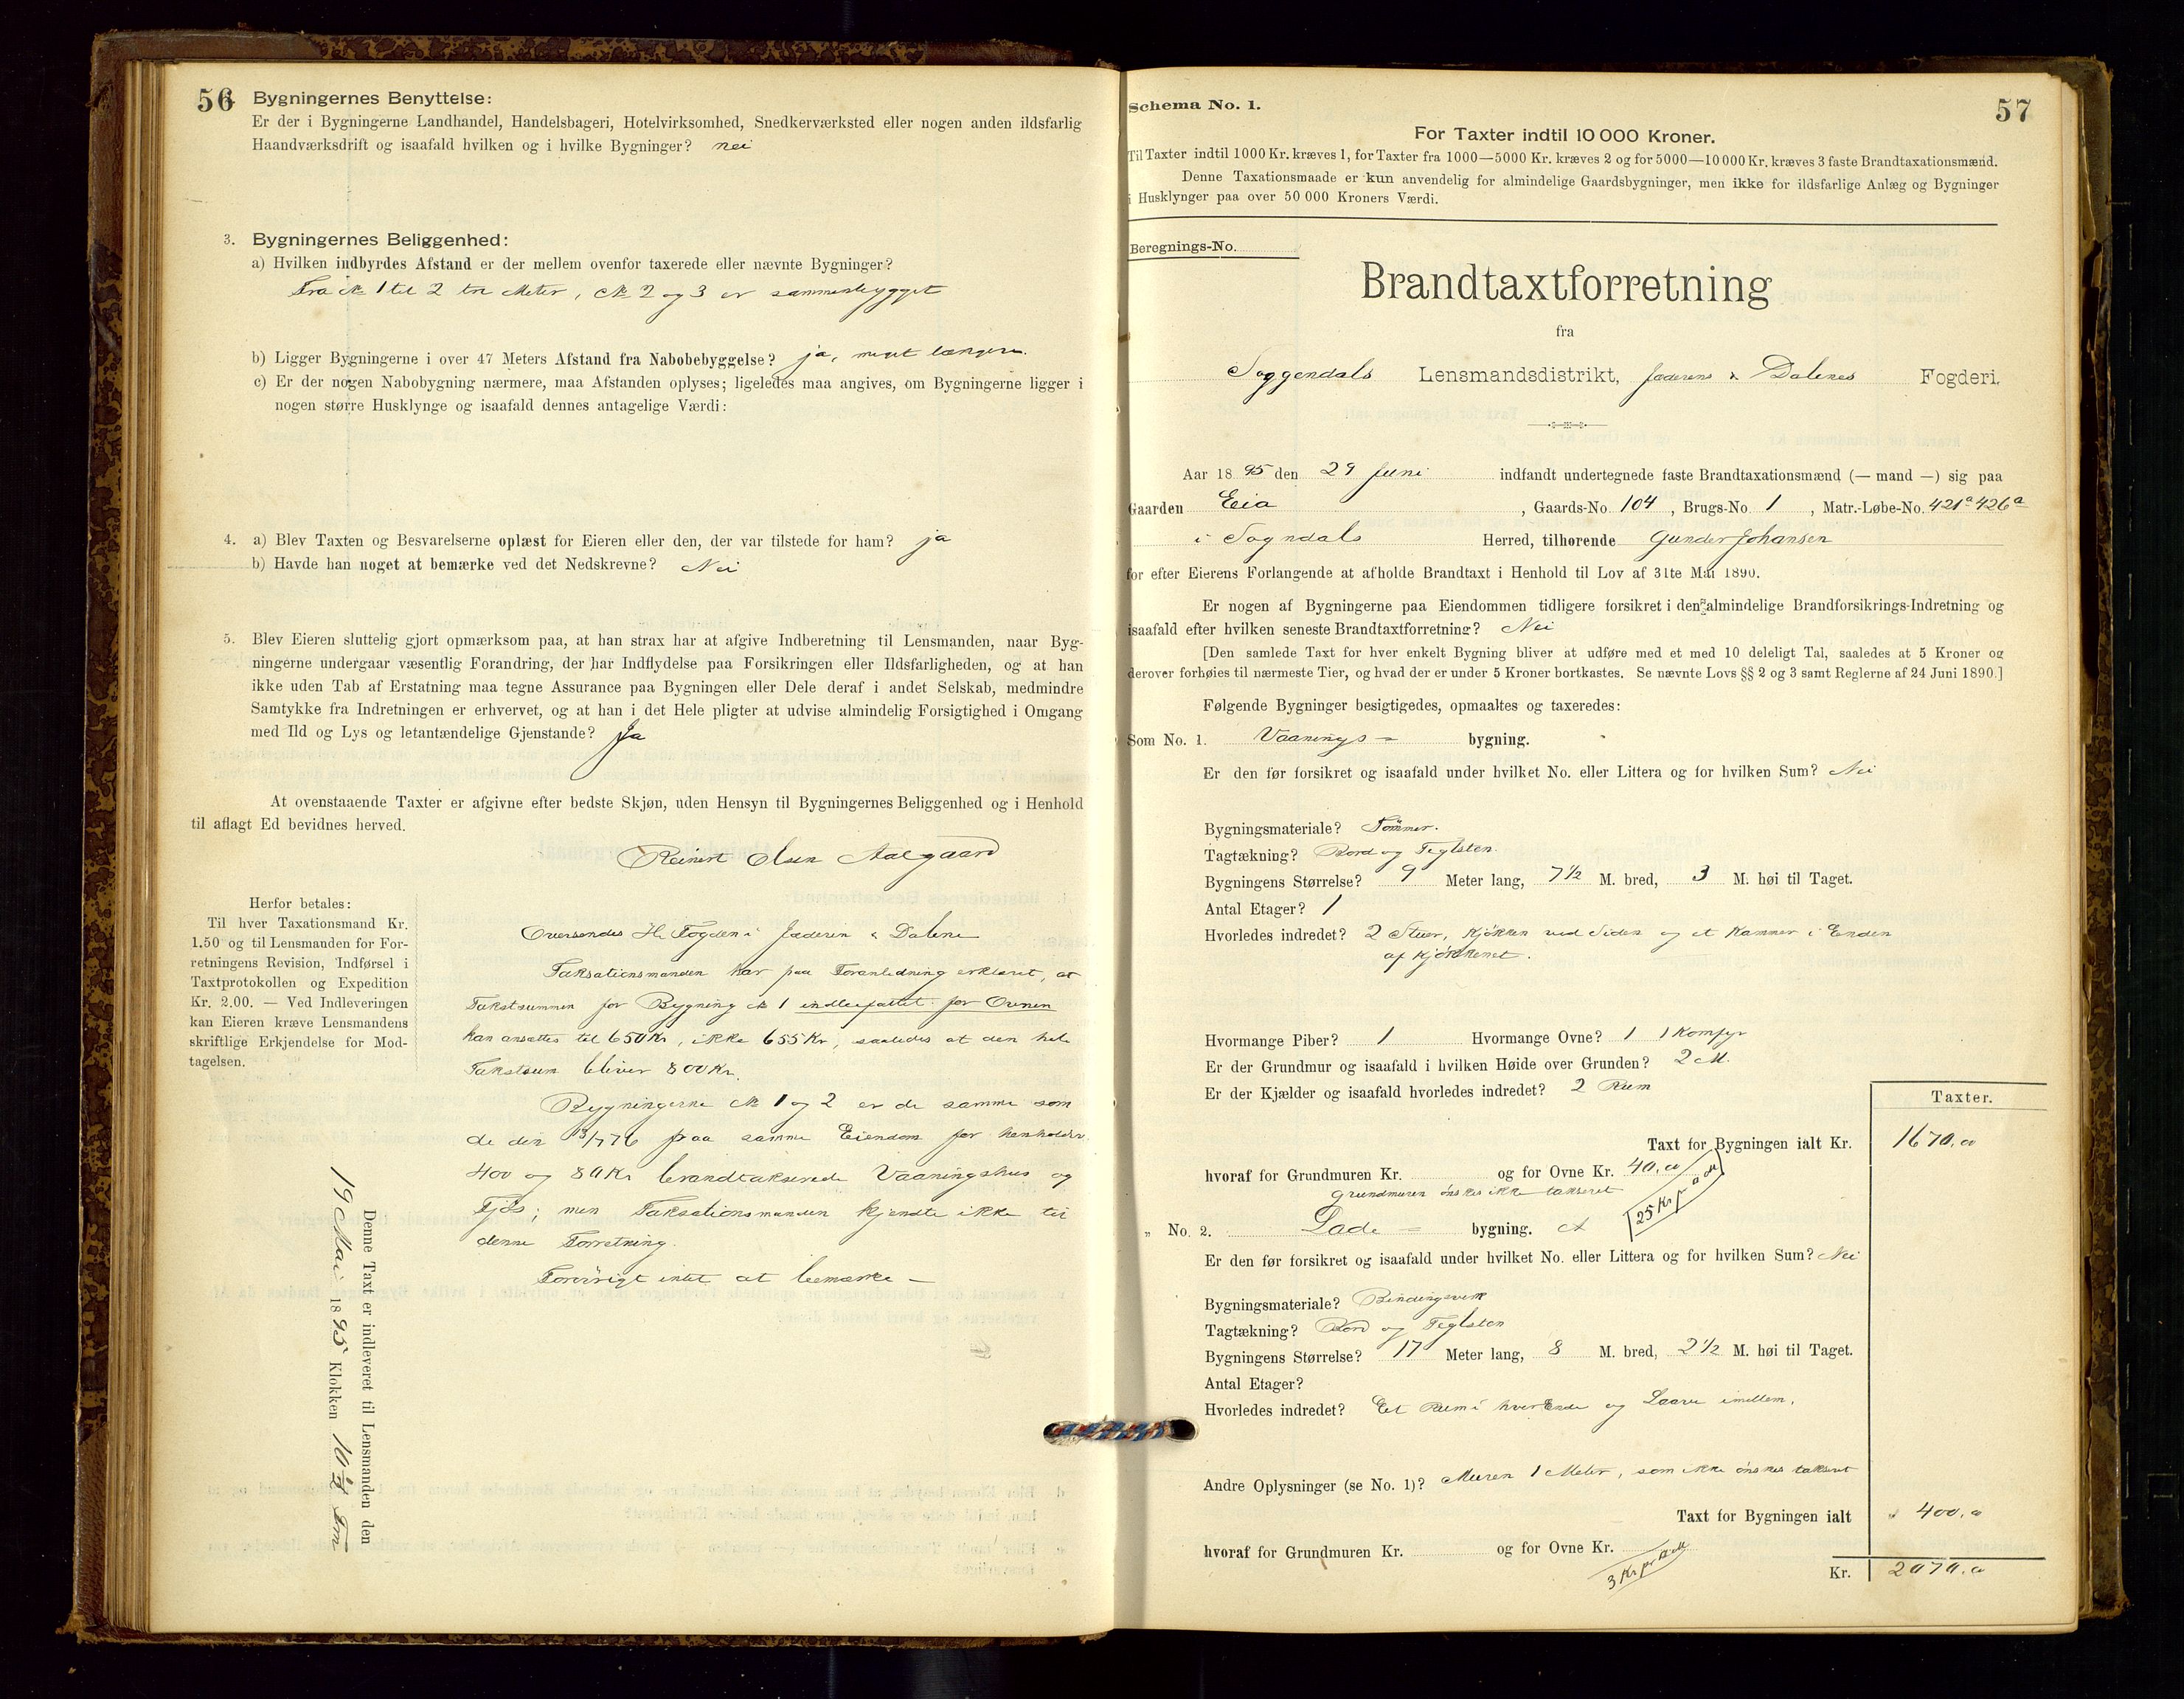 56
Bygningernes Benyttelse:
Er der i Bygningerne Landhandel, Handelsbageri, Hotelvirksomhed, Snedkerværksted eller nogen anden ildsfarlig
Haandværksdrift og isaafald hvilken og i hvilke Bygninger? nei
3. Bygningernes Beliggenhed:
a) Hvilken indbyrdes Afstand er der mellem ovenfor taxerede eller nævnte Bygninger?
Fra № 1 til 2 tre Meter, № 2 og 3 er sammenbygget
b) Ligger Bygningerne i over 47 Meters Afstand fra Nabobebyggelse? ja, meget længere.
c) Er der nogen Nabobygning nærmere, maa Afstanden oplyses; ligeledes maa angives, om Bygningerne ligger i
nogen større Husklynge og isaafald dennes antagelige Værdi:
4. a) Blev Taxten og Besvarelserne oplæst for Eieren eller den, der var tilstede for ham? ja
b) Havde han noget at bemærke ved det Nedskrevne? Nei
5. Blev Eieren sluttelig gjort opmærksom paa, at han strax har at afgive Indberetning til Lensmanden, naar Byg-
ningerne undergaar væsentlig Forandring, der har Indflydelse paa Forsikringen eller Ildsfarligheden, og at han
ikke uden Tab af Erstatning maa tegne Assurance paa Bygningen eller Dele deraf i andet Selskab, medmindre
Samtykke fra Indretningen er erhvervet, og at han i det Hele pligter at udvise almindelig Forsigtighed i Omgang
med Ild og Lys og letantændelige Gjenstande? Ja
At ovenstaaende Taxter er afgivne efter bedste Skjøn, uden Hensyn til Bygningernes Beliggenhed og i Henhold
til aflagt Ed bevidnes herved.
Reinert Olsen Aalgaard
Herfor betales:
Til hver Taxationsmand Kr.
1.50 og til Lensmanden for For-
retningens Revision, Indførsel i
Taxtprotokollen og Expedition
Kr. 2.00. — Ved Indleveringen
kan Eieren kræve Lensmandens
skriftlige Erkjendelse for Mod-
tagelsen.
Oversendes Hr Fogden i Jæderen & Dalene
Taksationsmanden har paa Foranledning erklæret, at
Takstsummen for Bygning № 1 indbefattet for Ovnen
kan ansættes til 650 Kr, ikke 655 Kr, saaledes at den hele
Takstsum bliver 800 Kr.
Bygningerne № 1 og 2 er de samme som
de den 13/7 76 paa samme Eiendom for henholdsv.
400 og 80 Kr brandtakserede Vaaningshus og
Fjøs; men Taksationsmanden kjendte ikke til
denne Forretning.
Forøvrigt intet at bemærke —
Denne Taxt er indleveret til Lensmanden den
19 Mai 1895 Klokken 10 1/2 Fm
Schema No. 1.
57
For Taxter indtil 10 000 Kroner.
Til Taxter indtil 1000 Kr. kræves 1, for Taxter fra 1000—5000 Kr. kræves 2 og for 5000—10 000 Kr. kræves 3 faste Brandtaxationsmænd.
Denne Taxationsmaade er kun anvendelig for almindelige Gaardsbygninger, men ikke for ildsfarlige Anlæg og Bygninger
i Husklynger paa over 50 000 Kroners Værdi.
Beregnings-No.
Brandtaxtforretning
fra
Soggendals Lensmandsdistrikt, Jæderens & Dalenes Fogderi.
Aar 1895 den 29 Juni indfandt undertegnede faste Brandtaxationsmænd (— mand —) sig paa
Gaarden Eia, Gaards-No. 104, Brugs-No. 1, Matr.-Løbe-No. 421a 426a
i Sogndals Herred, tilhørende Gunder Johansen
for efter Eierens Forlangende at afholde Brandtaxt i Henhold til Lov af 31te Mai 1890.
Er nogen af Bygningerne paa Eiendommen tidligere forsikret i den almindelige Brandforsikrings-Indretning og
isaafald efter hvilken seneste Brandtaxtforretning? Nei
[Den samlede Taxt for hver enkelt Bygning bliver at udføre med et med 10 deleligt Tal, saaledes at 5 Kroner og
derover forhøies til nærmeste Tier, og hvad der er under 5 Kroner bortkastes. Se nævnte Lovs §§ 2 og 3 samt Reglerne af 24 Juni 1890.]
Følgende Bygninger besigtigedes, opmaaltes og taxeredes:
Som No. 1. Vaanings- bygning.
Er den før forsikret og isaafald under hvilket No. eller Littera og for hvilken Sum? Nei
Bygningsmateriale? Tømmer.
Tagtækning? Bord og Teglsten.
Bygningens Størrelse? 9 Meter lang, 7 1/2 M. bred, 3 M. høi til Taget.
Antal Etager? 1
Hvorledes indredet? 2 Stuer, Kjøkken ved Siden og et Kammer i Enden
af Kjøkkenet.
Hvormange Piber? 1 Hvormange Ovne? 1 1 Komfyr
Er der Grundmur og isaafald i hvilken Høide over Grunden? 2 M.
Er der Kjælder og isaafald hvorledes indredet? 2 Rum
Taxter.
Taxt for Bygningen ialt Kr. 1670,00
hvoraf for Grundmuren Kr. og for Ovne Kr. 40,00
Grundmuren ønskes ikke takseret
„ No. 2. Lade- bygning.
Er den før forsikret og isaafald under hvilket No. eller Littera og for hvilken Sum? Nei
Bygningsmateriale? Bindingsverk
Tagtækning? Bord og Teglsten
Bygningens Størrelse? 17 Meter lang, 8 M. bred, 2 1/2 M. høi til Taget.
Antal Etager?
Hvorledes indredet? Et Rum i hver Ende og Laave imellem.
Andre Oplysninger (se No. 1)? Muren 1 Meter, som ikke ønskes takseret
Taxt for Bygningen ialt 400,00
hvoraf for Grundmuren Kr. og for Ovne Kr.
Kr. 2070,00